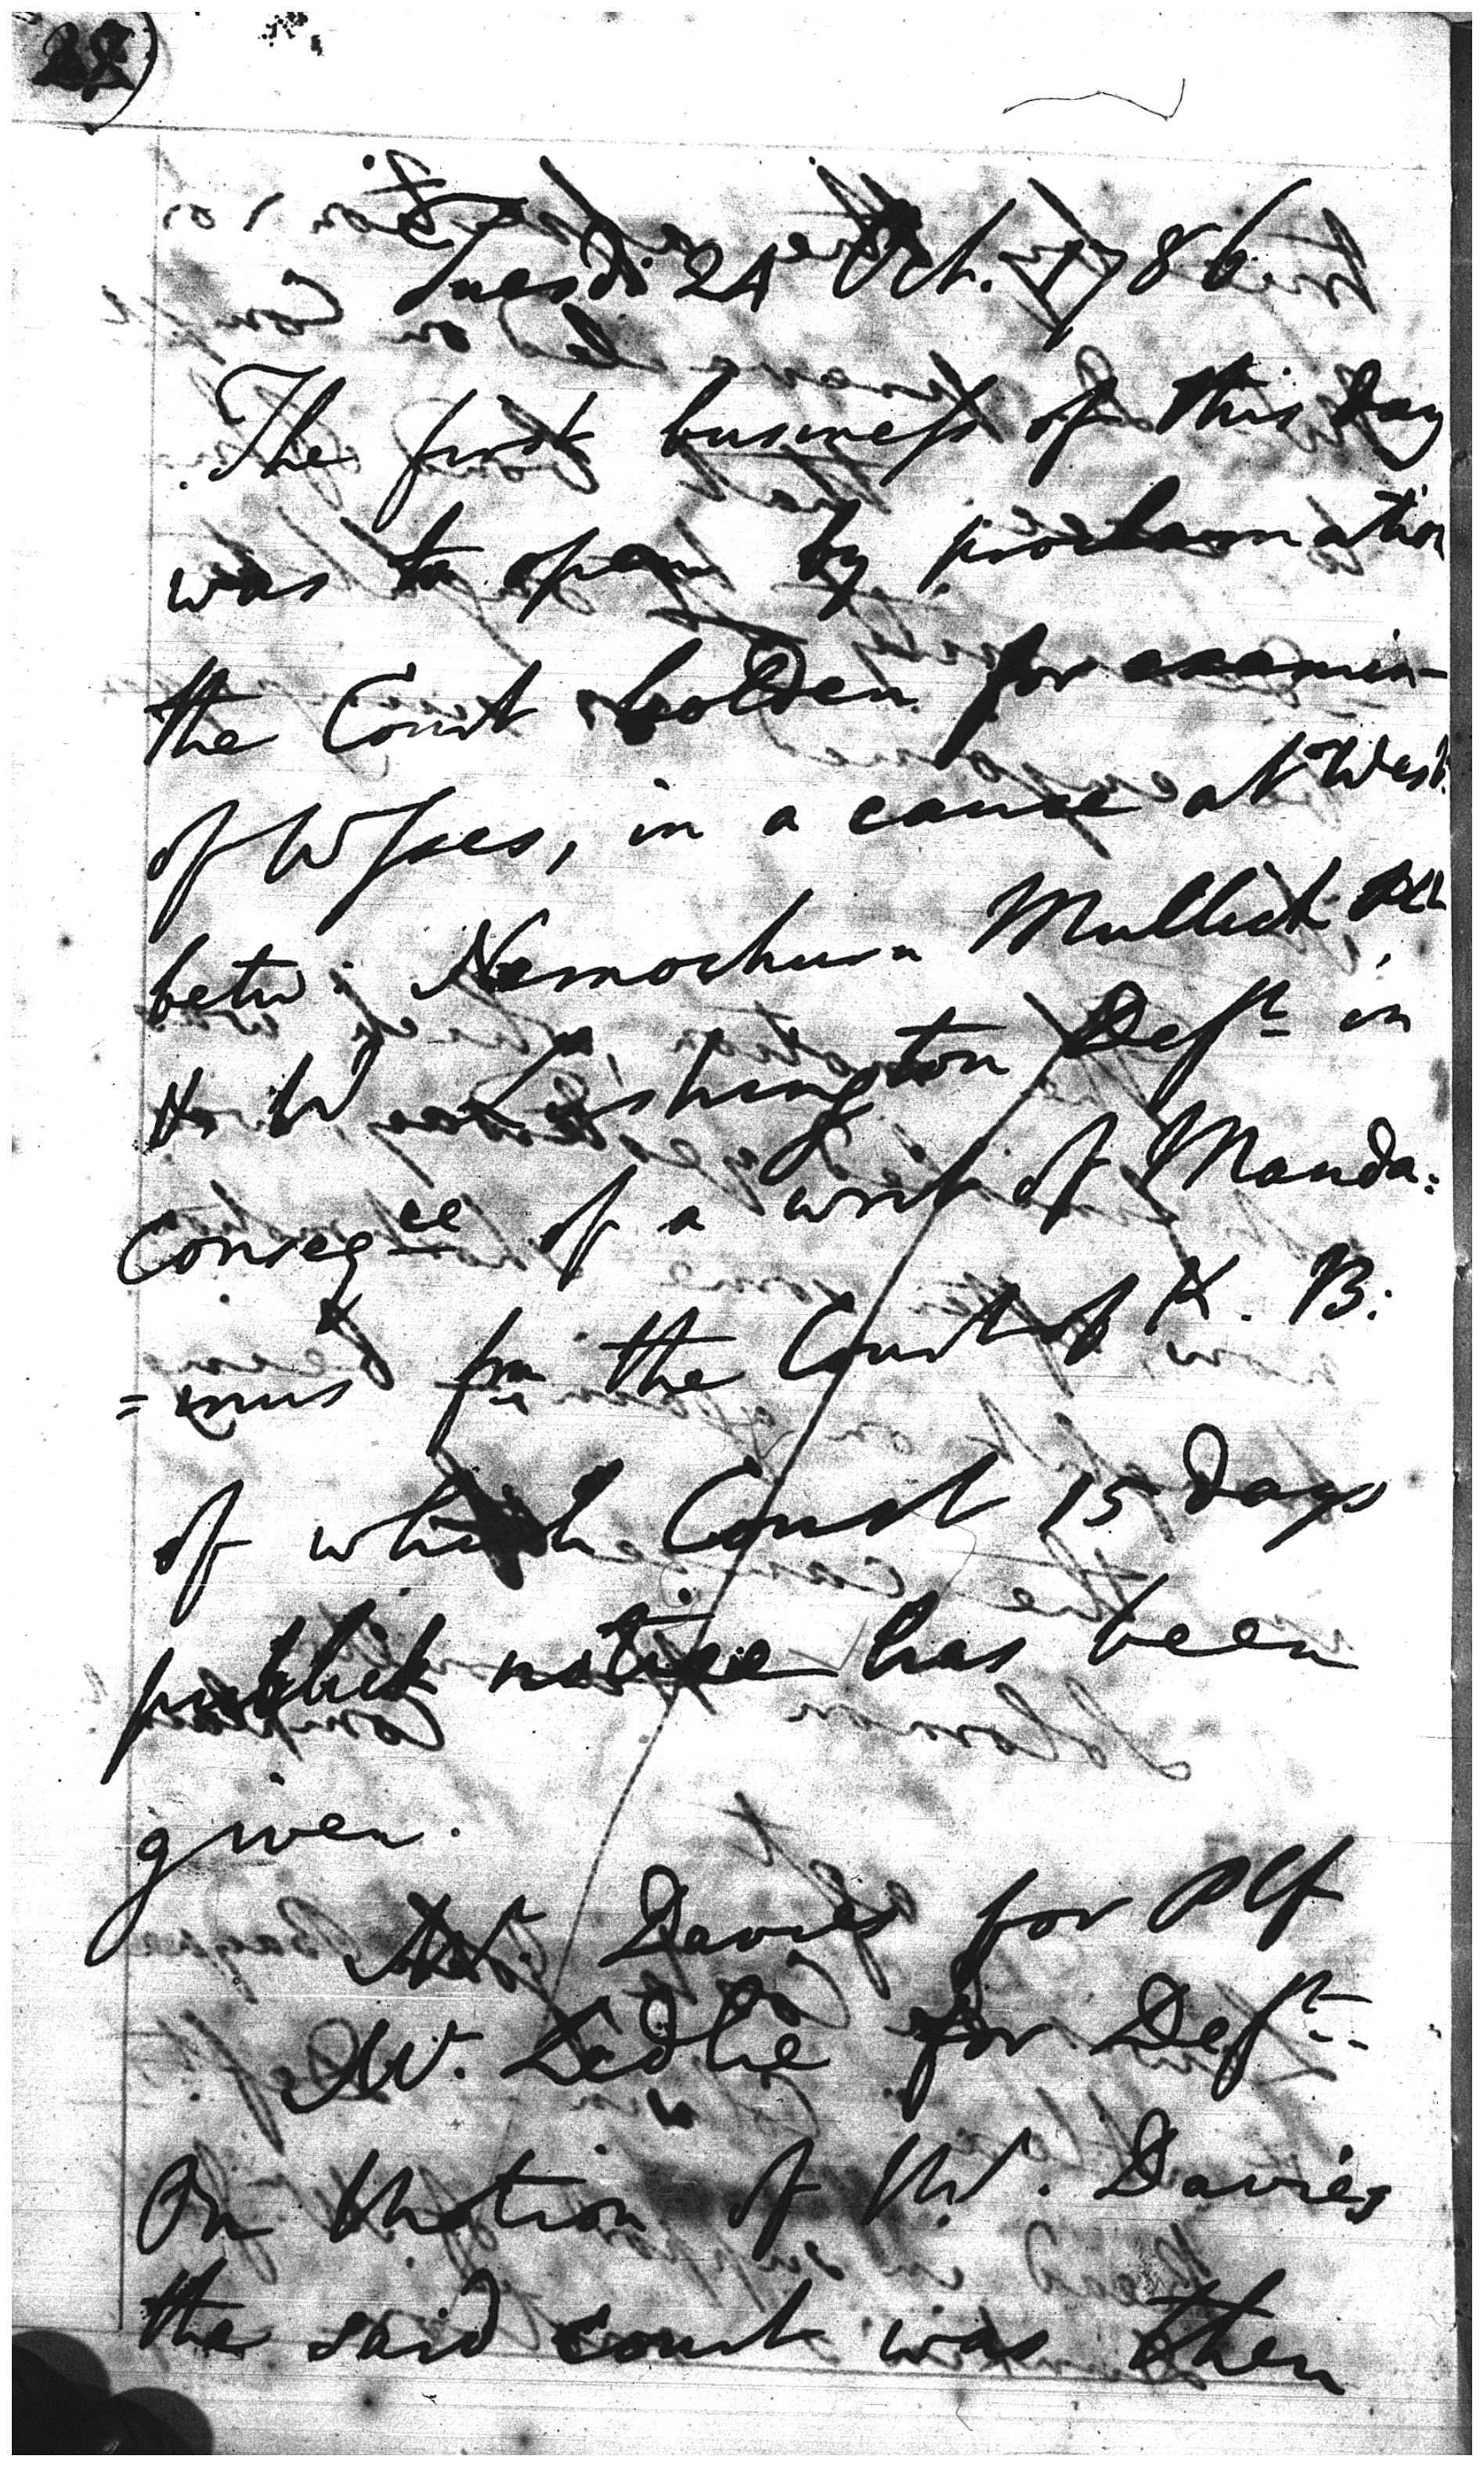 22)
Tuesd: 24 Oct. 1786
The first business of this Day
was to open by proclamation
the Court holden for examin-
of Wsses, in a cause at West.
betw: Nemochurn Mullick Plt
& W Lushington Deft in
Conseqce of a writ of Manda:
=mus fm the Court of K. B:
of which Court 15 days
publick notice has been
given.
Mr. Davies for Plf
Mr. Ledlie for Deft
On Motion of Mr. Davies
the said court was then